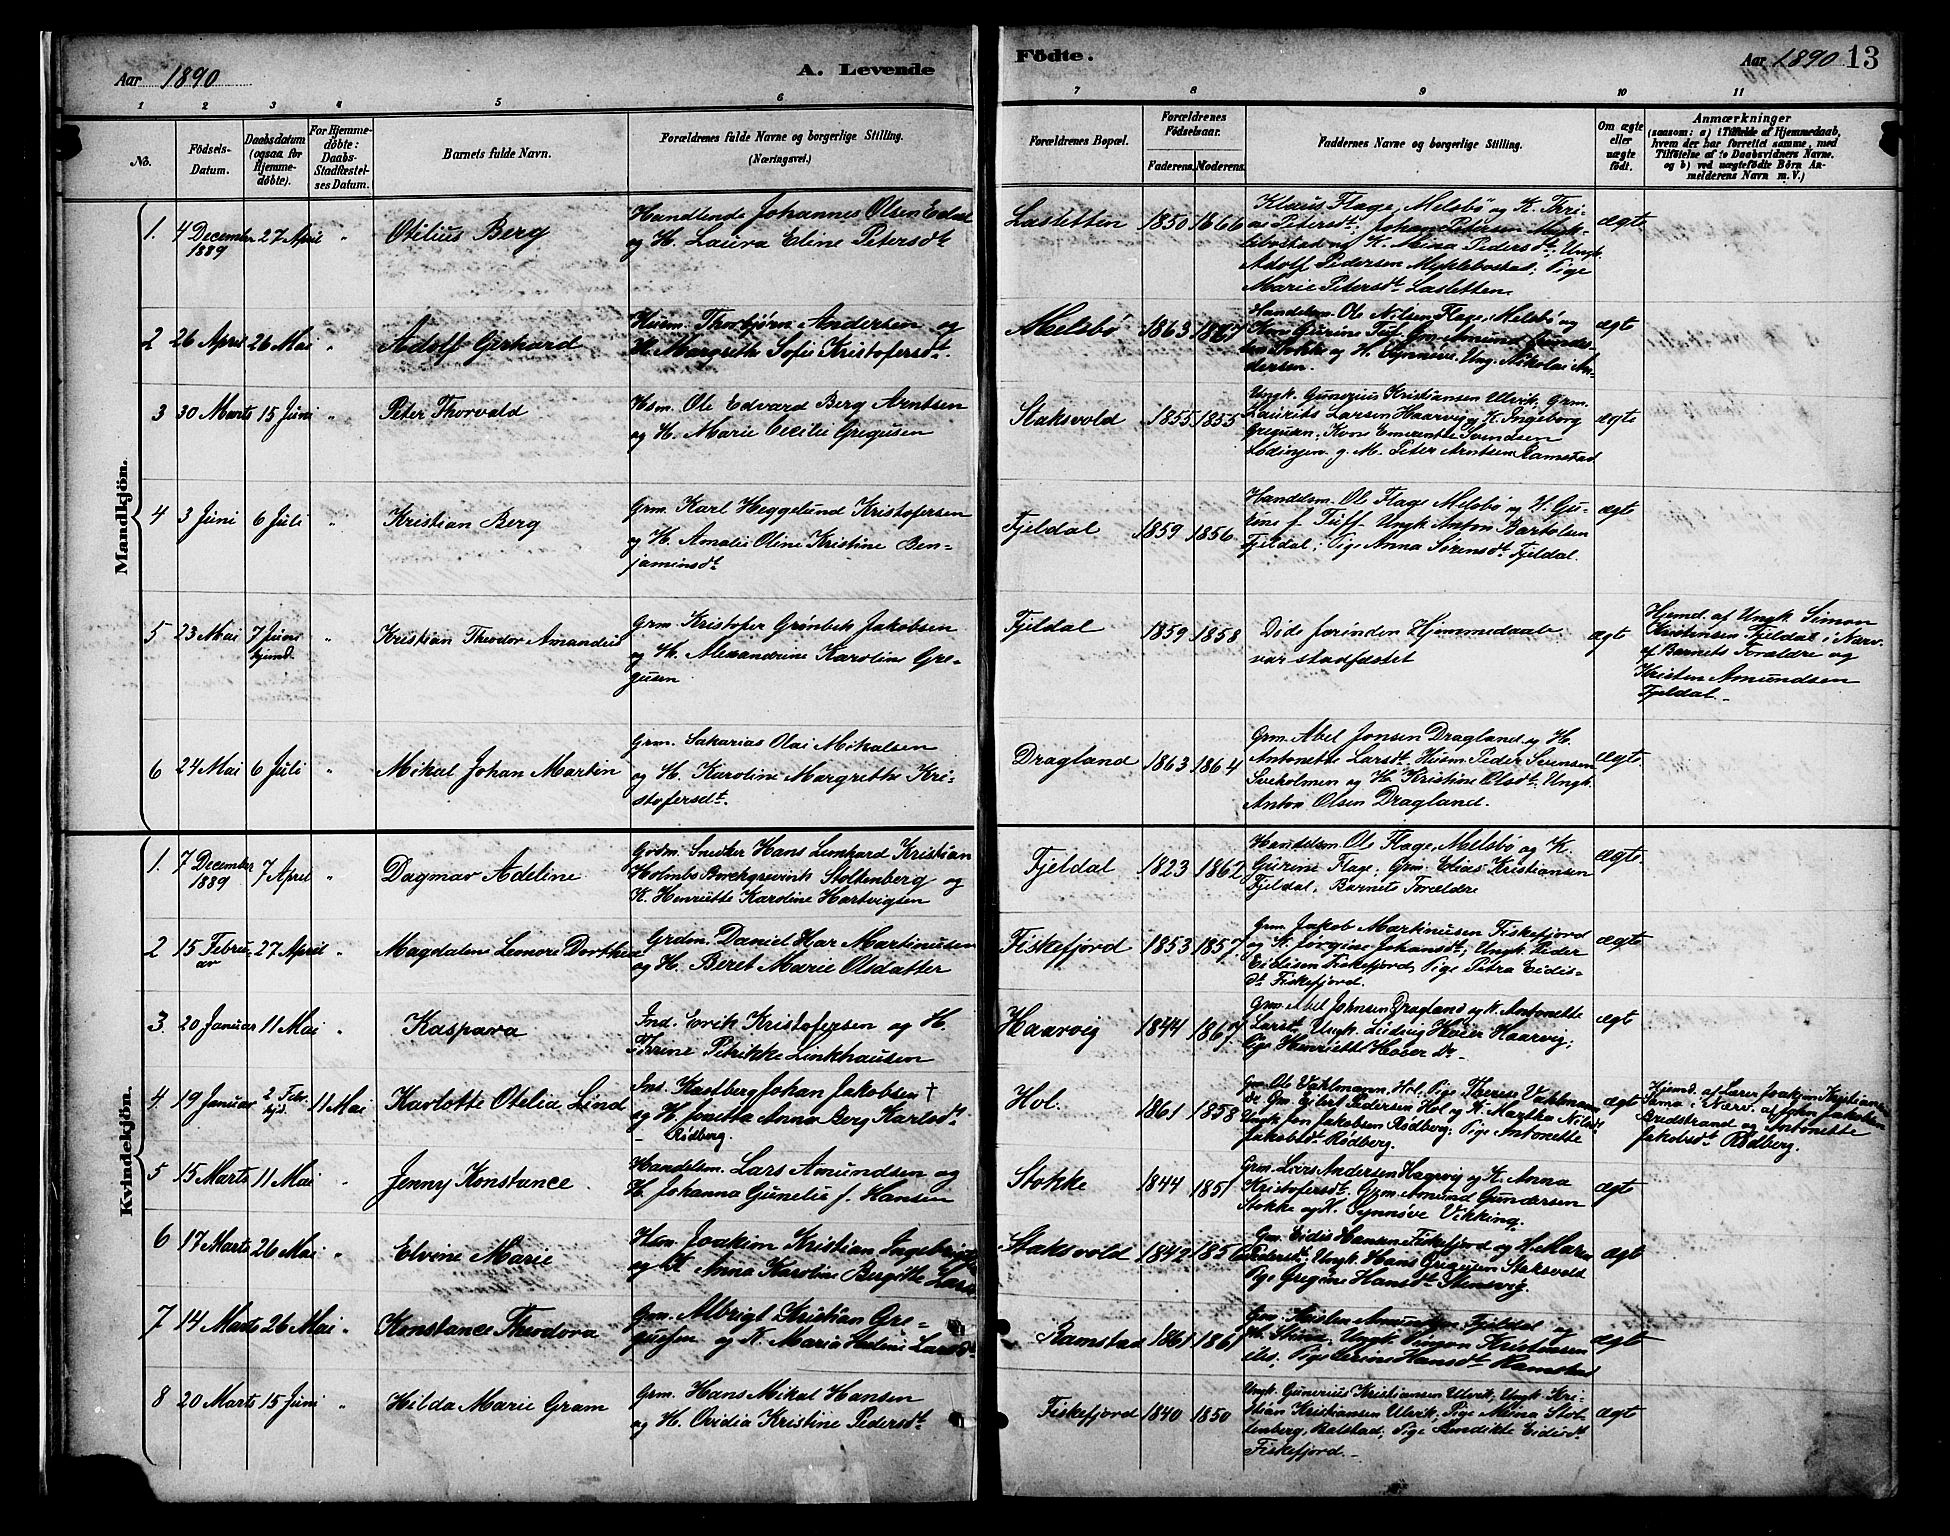 Aar 1890
A. Levende
Födte.
Aar 1890 13
1 2 3 4 5 6 7 8 9 10 11
No.
Födsels-Datum.
Daabsdatum (ogsaa for Hjemme-döbte).
For Hjemme-döbte: Daabs-Stadfæstel-ses Datum.
Barnets fulde Navn.
Forældrenes fulde Navne og borgerlige Stilling.
(Næringsvei.)
Forældrenes Bopæl.
Forældrenes Födselsaar.
Faderens. Moderens.
Faddernes Navne og borgerlige Stilling.
Om ægte eller uægte födt.
Anmærkninger
(saasom: a) i Tilfælde af Hjemmedaab, hvem der har forrettet samme, med Tilföielse af to Daabsvidners Navne. og b) ved uægtefödte Börn Anmelderens Navn m. V.)
Mandkjön.
1. 4 December 1889 27 April " Otilius Berg
Handlende Johannes Olsen
og H. Laura Eline Petersdt
Lasletten 1850 1866
Klaus Flage, Melsbø og K.
Petersdt, Johan Petersen
og K. Pedersdt, Ungk.
Adolf Pedersen Myklebostad, Pige
Marie Petersdt Lasletten.
ægte
2 26 April 26 Mai " Adolf Gerhard
Husm. Thorbjørn Andersen og
H. Margrethe Sofie Kristofersdt.
Melsbø 1863 1867
Handelsm. Ole Nilsen Flage, Melsbø og
Kone Gurine Grm. Amund
Stokke og H. Synneve. Ung. Nikolai An-
dersen.
ægte
3 30 Marts 15 Juni " Peter Thorvald
Hsm. Ole Edvard Berg Arntsen
og H. Marie Cecilie Gregusen
Staksvold 1855 1855
Ungk. Gunerius Kristiansen Ulvik, Grm.
Laurits Larsen Haarvig og K. Ingeborg
Kone Emerentse Svendsen
Lødingen. g. M. Peter Arntsen Ramstad
ægte
4 3 Juni 6 Juli " Kristian Berg
Grm. Karl Heggelund Kristofersen
og H. Amalie Oline Kristine Ben-
jaminsdt
Fjeldal 1859 1856
Handelsm. Ole Flage Melsbø og H. Gu-
Ungk Anton Bartolsen
Fjeldal, Pige Anna Sørensdt Fjeldal.
ægte
5 23 Mai 7 Juni hjemd. " Kristian Theodor Amandus
Grm Kristofer Grønbek Jakobsen
og H. Alexandrine Karoline Gre-
gusen
Fjeldal 1859 1858
Døde forinden Hjemmedaab
var stadfæstet
ægte
Hjemd. af Ungk. Simon
Kristensen Fjeldal i Nærv.
af Barnets Forældre og
Kristen Amundsen
Fjeldal.
6 24 Mai 6 Juli " Mikal Johan Martin
Grm. Sakarias Olai Mikalsen
og H. Karoline Margrethe Kri-
stofersdt.
Dragland 1863 1864
Grm Abel Jonsen Dragland og H.
Antonette Larsdt, Husm Peder Sørensen
og H. Kristine Olsdt. Ungk.
Anton Olsen Dragland.
ægte.
Kvindekjön.
1. 7 December 1889 7 April " Dagmar Adeline
Snedker Hans Lemhard Kristian
Holmbo Borchgrevink Stoltenberg og
K. Henriette Karoline Hartvigsen
Fjeldal 1823 1862
Handelsm Ole Flage, Melsbø og K.
Gurine Flage, Grm. Elias Kristiansen
Fjeldal, Barnets Forældre
ægte.
2 15 Februar 27 April " Magdalene Lenore Dorthea
Grdm. Daniel Har Martinusen
og H. Beret Marie Olsdatter
Fiskefjord 1853 1857.
Grm. Jakob Martinusen Fiskefjord
og K. Jørgine Johansdt, Ungk. Peder
Eidisen Fiskefjord, Pige Petra Eidis-
dt. Fiskefjord.
ægte
3. 20 Januar 11 Mai " Kaspara
Ind. Erik Kristofersen og H.
Petrikke Linkhausen
Haarvig 1844 1867.
Grm. Abel Johnsen Dragland og K. Antonette
Larsdt, Ungk. Ludvig Haarvig,
Pige Henriette Do.
ægte
4. 19 Januar 2 Febr hjd. 11 Mai Karlotte Otelia Lind
Ins. Kastberg Johan Jakobsen †
og H. Anna Berg Karlsdt
Rødberg.
Hol. 1861 1858
Gm. Ole Vahlmann, Hol, Pige Therese Vahlmann
Gm. Pedersen Hol og K. Martha Nilsdt
Ungk Jon Jakobsen Rødberg, Pige Antonette
Jakobsdt Rødberg.
ægte
Hjemd. af Lars Joakim Kristiansen
i Nærv. af John Jakobsen
Bredstrand og Antonette
Jakobsdt Rødberg.
5 15 Marts 11 Mai " Jenny Konstance
Handelsm. Lars Amundsen og
H. Johanna Gunelie f. Hansen
Stokke 1844 1851
Grm. Lars Andersen Haarvig og K. Anna
Kristofersdt. Grm. Amund Gundersen
Stokke og K. Synnøve Vikking.
ægte
6 17 Marts 26 Mai " Elvine Marie
Hsm. Joakim Kristian
og K. Anna Karoline Bergitte
Staksvold 1842
Gm. Eidis Hansen Fiskefjord og H. Maren
Pedersdt, Ungk. Hans Gregusen Staksvold
Pige Gregine Hansdt Stensvig.
ægt
7 14 Marts 26 Mai " Konstance Theodora
Grm. Albrigt Kristian Gre-
gusen og K. Maria Helene Larsdt
Ramstad 1861 1861
Gm. Kristen Amundsen Fjeldal og
Ungk. Simon Kristensen
Pige Hansdt Ramstad
ægte
8 20 Marts 15 Juni " Hilda Marie Gram
Grm. Hans Mikal Hansen
og H. Ovidia Kristine Pedersdt
Fiskefjord 1840 1850
Ungk. Gunerius Kristiansen Ulvik, Ungk. Kri-
stian Kristiansen Ulvik, Pige Mina Stol-
tenberg, Balstad, Pige Eidisdt
Fiskefjord.
ægte